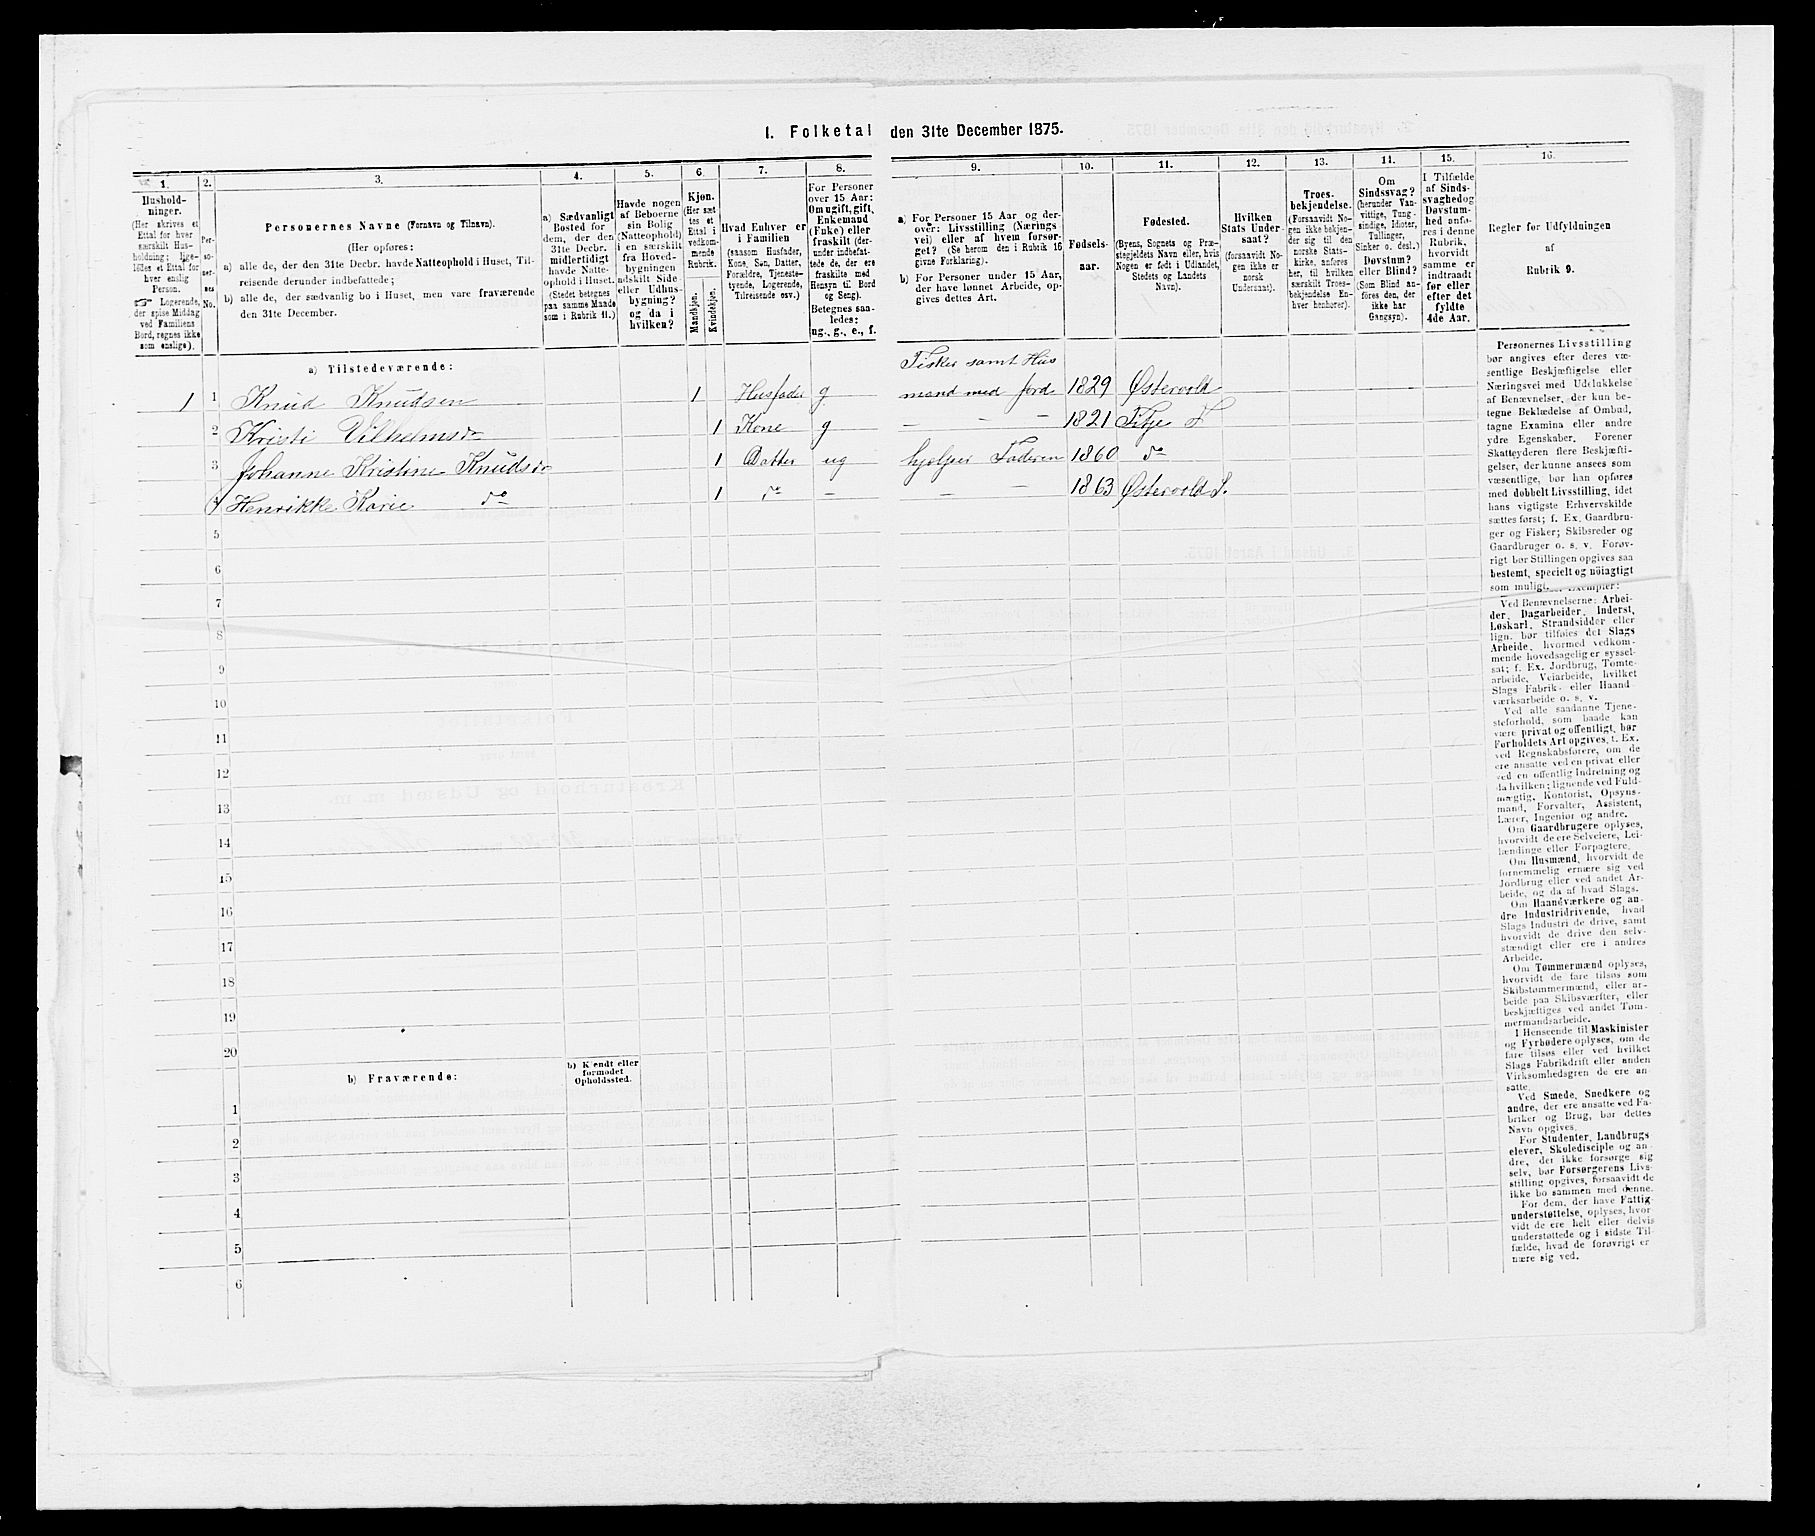 I. Folketal den 31te December 1875.
1.
Hushold-
ninger.
(Her skrives et
Ettal for hver
særskilt Hus-
holdning; lige-
ledes et Ettal for
hver enslig
Person.
☞ Logerende,
der spise Middag
ved Familiens
Bord, regnes ikke
som enslige).
2.
Per-
so-
ner-
nes
No.
3.
Personernes Navne (Fornavn og Tilnavn).
(Her opføres:
a) alle de, der den 31te Decbr. havde Natteophold i Huset, Til-
reisende derunder indbefattede;
b) alle de, der sædvanlig bo i Huset, men vare fraværende
den 31te December.
4.
a) Sædvanligt
Bosted for
dem, der den
31te Decbr.
midlertidigt
havde Natte-
ophold i Huset.
(Stedet betegnes
paa samme Maade
som i Rubrik 11.)
5.
Havde nogen
af Beboerne
sin Bolig
(Natteophold)
i en særskilt
fra Hoved-
bygningen
adskilt Side-
eller Udhus-
bygning?
og da i
hvilken?
6.
Kjøn.
(Her sæt-
tes et
Ettal i
vedkom-
mende
Rubrik.
Mandkjøn.
Kvindekjøn.
7.
Hvad Enhver er
i Familien
(saasom Husfader,
Kone, Søn, Datter,
Forældre, Tjeneste-
tyende, Logerende,
Tilreisende osv.)
8.
For Personer
over 15 Aar:
Om ugift, gift,
Enkemand
(Enke) eller
fraskilt (der-
under indbefat-
tede de, der ere
fraskilte med
Hensyn til Bord
og Seng).
Betegnes saa-
ledes:
ug., g., e., f.
9.
a) For Personer 15 Aar og der-
over: Livsstilling (Nærings-
vei) eller af hvem forsør-
get? (Se herom den i Rubrik 16
givne Forklaring).
b) For Personer under 15 Aar,
der have lønnet Arbeide, op-
gives dettes Art.
10.
Fødsels-
aar.
11.
Fødested.
(Byens, Sognets og Præ-
stegjeldets Navn eller, hvis
Nogen er født i Udlandet,
Stedets og Landets
Navn).
12.
Hvilken
Stats Under-
saat?
(forsaavidt No-
gen ikke er
norsk
Undersaat).
13.
Troes-
bekjendelse.
(Forsaavidt No-
gen ikke bekjen-
der sig til den
norske Stats-
kirke, anføres
her, til hvilken
særskilt Troes-
bekjendelse En-
hver henhører).
14.
Om
Sindssvag?
(herunder Van-
vittige, Tung-
sindige, Idioter,
Tullinger,
Sinker o. desl.)
Døvstum?
eller Blind?
(Som Blind an-
føres den, der
ikke har
Gangsyn).
15.
I Tilfælde
af Sinds-
svaghed og
Døvstum-
hed anfø-
res i denne
Rubrik,
hvorvidt
samme er
indtraadt
før eller
efter det
fyldte
4de Aar.
16.
Regler for Udfyldningen
af
Rubrik 9.
a) Tilstedeværende:
Fisker samt Hus
1 1 Knud Knudsen 1 Husfader g mand med Jord 1829 Østervold
2 Kristi Vilhelmsdr 1 Kone g — — 1821 Fitje
3 Johanne Kristine Knudsdr 1 Datter ug hjelper Faderen 1860 do
4 Henrikke Karie do 1 do — — — 1863 Østervold S.
5
6
7
8
9
10
11
12
13
14
15
16
17
18
19
20
b) Fraværende:
b) Kjendt eller
formodet
Opholdssted.
1
2
3
4
5
6
Personernes Livsstilling
bør angives efter deres væ-
sentlige Beskjæftigelse eller
Næringsvei med Udelukkelse
af Benævnelser, der kun be-
tegne Beklædelse af Ombud,
tagne Examina eller andre
ydre Egenskaber. Forener
Skatteyderen flere Beskjæfti-
gelser, der kunne ansees som
væsentlige, bør han opføres
med dobbelt Livsstilling, idet
hans vigtigste Erhvervskilde
sættes først; f. Ex. Gaardbru-
ger og Fisker; Skibsreder og
Gaardbruger o. s. v. Forøv-
rigt bør Stillingen opgives saa
bestemt, specielt og nöiagtigt
som muligt.
Exempler:
Ved Benævnelserne: Arbei-
der, Dagarbeider, Inderst,
Løskarl, Strandsidder eller
lign. bør tilføies det Slags
Arbeide, hvormed vedkom-
mende hovedsagelig er syssel-
sat; f. Ex. Jordbrug, Tomte-
arbeide, Veiarbeide, hvilket
Slags Fabrik- eller Haand-
værksarbeide o. s. v.
Ved alle saadanne Tjene-
steforhold, som baade kan
være privat og offentligt, bør
Forholdets Art opgives, f. Ex.
ved Regnskabsførere, om de
ere ansatte ved en privat eller
ved en offentlig Indretning og
da hvilken; lignende ved Fuld-
mægtig, Kontorist, Opsyns-
mand, Forvalter, Assistent,
Lærer, Ingeniør og andre.
Om Gaardbrugere oplyses,
hvorvidt de ere Selveiere, Lei-
lændinge eller Forpagtere.
Om Husmænd, hvorvidt de
fornemmelig ernære sig ved
Jordbrug eller ved andet Ar-
beide, og da af hvad Slags.
Om Haandværkere og an-
dre Industridrivende, hvad
Slags Industri de drive, samt
hvorvidt de drive den selv-
stændigt eller ere i andres
Arbeide.
Om Tømmermænd oplyses,
hvorvidt de fare tilsøs som
Skibstømmermænd, eller ar-
beide paa Skibsværfter, eller
beskjæftiges ved andet Tøm-
mermandsarbeide.
I Henseende til Maskinister
og Fyrbødere oplyses, om de
fare tilsøs eller ved hvilket
Slags Fabrikdrift eller anden
Virksomhedsgren de ere an-
satte.
Ved Smede, Snedkere og
andre, der ere ansatte ved Fa-
briker og Brug, bør dettes
Navn opgives.
For Studenter, Landbrugs-
elever, Skoledisciple og an-
dre, der ikke forsørge sig
selv, bør Forsørgerens Livs-
stilling opgives, forsaavidt de
ikke bo sammen med denne.
For dem, der have Fattig-
understøttelse, oplyses, hvor-
vidt de ere helt eller delvis
understøttede og i sidste Til-
fælde, hvad de forøvrigt er-
nære sig ved.